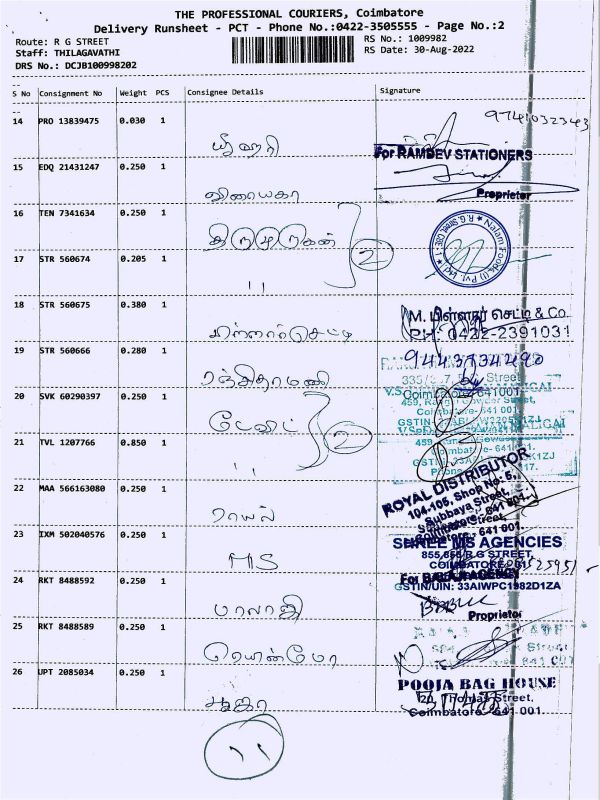 THE PROFESSIONAL COURIERS, Coimbatore
Delivery Runsheet - PCT - Phone No.:0422-3505555 - Page No.:2
Route: R G STREET
Staff: THILAGAVATHI
DRS No.: DCJB100998202
RS No.: 1009982
RS Date: 30-Aug-2022
S No Consignment No Weight PCS Consignee Details Signature
14 PRO 13839475 0.030 1
For RAMDEV STATIONERS
Proprietor
15 EDQ 21431247 0.250 1
விநாயகா
16 TEN 7341634 0.250 1
திருமுருகன் 2
17 STR 560674 0.205 1
"
Nalam Foods (I) Pvt. Ltd.
R.G. Street, CBE-1
18 STR 560675 0.380 1
M. பிள்ளார் செட்டி & Co.
PH: 0422-2391031
19 STR 560666 0.280 1
ரஞ்சிதாமணி
9443734490
Coimbatore-641001
20 SVK 60290397 0.250 1
2
21 TVL 1207766 0.850 1
"
22 MAA 566163080 0.250 1
ராயல்
ROYAL DISTRIBUTOR
104-105, Shop No: 5,
Subbaya Street,
Coimbatore - 641 001.
23 IXM 502040576 0.250 1
MS
SHREE MS AGENCIES
855,856 R G STREET,
COIMBATORE-01
GSTIN/UIN: 33AIWPC1982D1ZA
24 RKT 8488592 0.250 1
பாலாஜி
For BALAJI AGENCY
Proprietor
25 RKT 8488589 0.250 1
ரெயின்போ
26 UPT 2085034 0.250 1
பூஜா
POOJA BAG HOUSE
20, Thomas Street,
Coimbatore - 641 001.
11